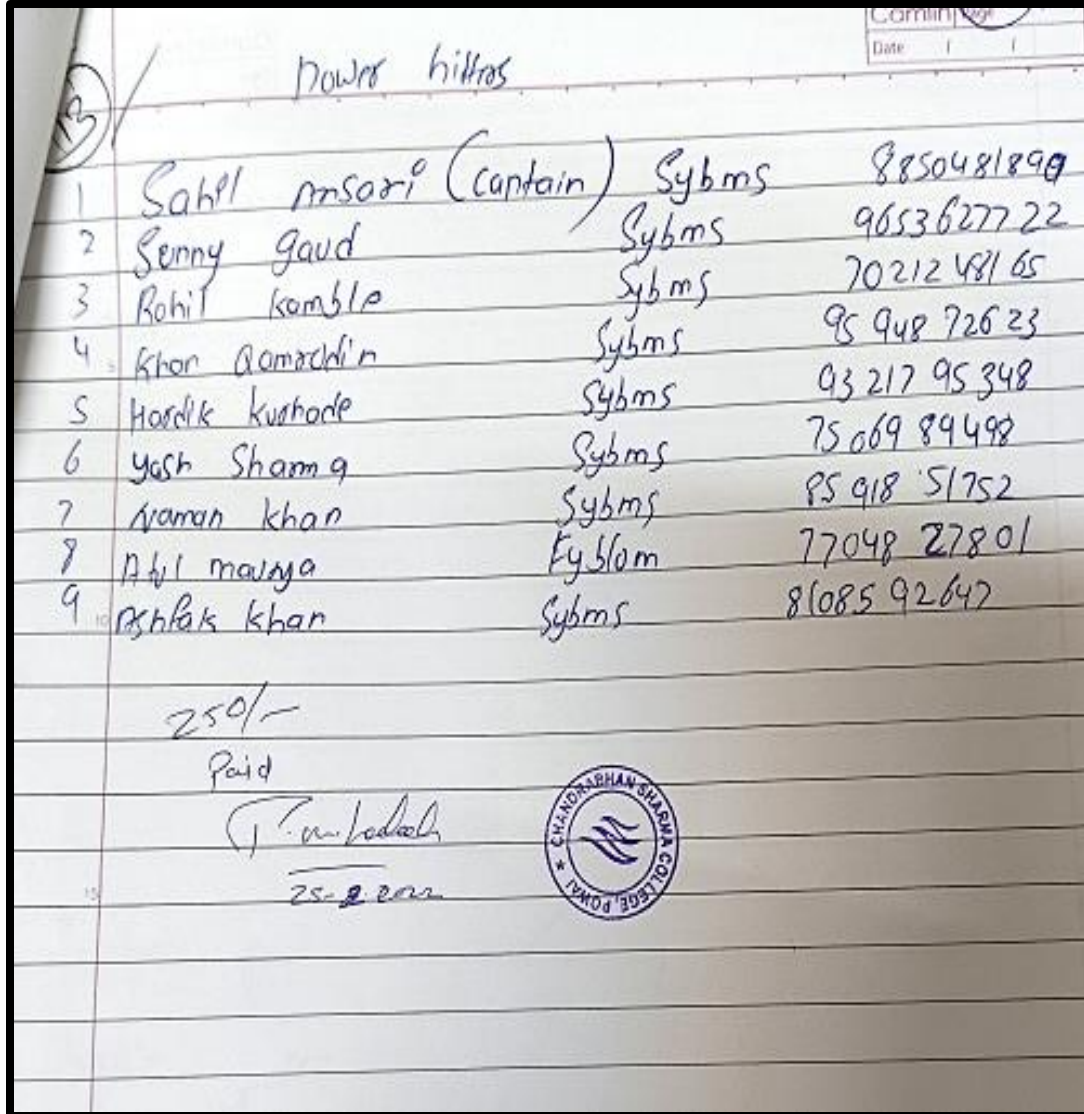 Camlin Page
Date / /
13
Power hittros
1 Sahil Ansari (Captain) Sybms 8850481890
2 Sunny gaud Sybms 9653627722
3 Rohit kamble Sybms 70212 48165
4 Khan Qamruddin Sybms 95 948 72623
5 Hardik Sybms 93217 95348
6 Yash Sharma Sybms 75069 89498
7 Naman khan Sybms 85 918 51752
8 Atul maurya Fy blom 77048 27801
9 Ashfak khan Sybms 81085 92647
250/-
Paid
25-2-2022
CHANDRABHAN SHARMA COLLEGE, POWAI ★